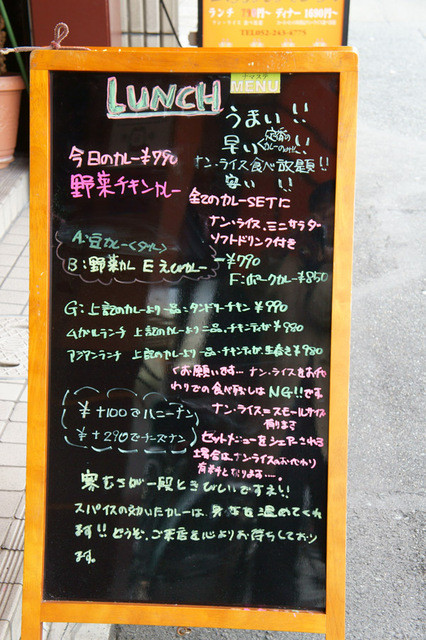 ランチ 790円〜 ディナー 1090円〜
LUNCH
MENU
うまい!!
早い!!
ナン・ライス食べ放題!!
安い!!
今日のカレー¥790
野菜チキンカレー
全てのカレーSETに
ナン・ライス、ミニサラダ
ソフトドリンク付き
A:豆カレー
ー¥790
B:野菜カレー E えびカレー
F:ポークカレー¥850
G:上記のカレーより一品、タンドリーチキン¥990
ムガルランチ 上記のカレーより二品、チキンティカ¥980
アジアンランチ 上記のカレーより一品、チキンティカ、生春巻¥980
くお願いします…ナン・ライスをおか
わりでの食べ残しはNG!!です
ナン・ライス=スモールサイズ
有ります
¥+100でハニーナン
¥+290でチーズナン
セットメニューをシェアーされる
場合は、ナン・ライスのおかわり
有料となります……。
寒さが一段ときびしいですネ!!
スパイスの効いたカレーは、身体を温めてくれ
ます!!どうぞ、ご来店を心よりお待ちしており
ます。